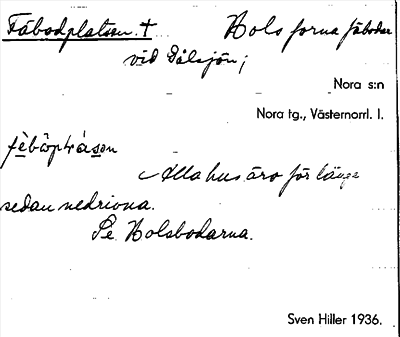 Fäbodplatsen. † Hols forna fäbodar
vid Dålsjön;
Nora s:n
Nora tg., Västernorrl. l.
Alla hus äro för länge
sedan nedrivna.
Se Holsbodarna.
Sven Hiller 1936.